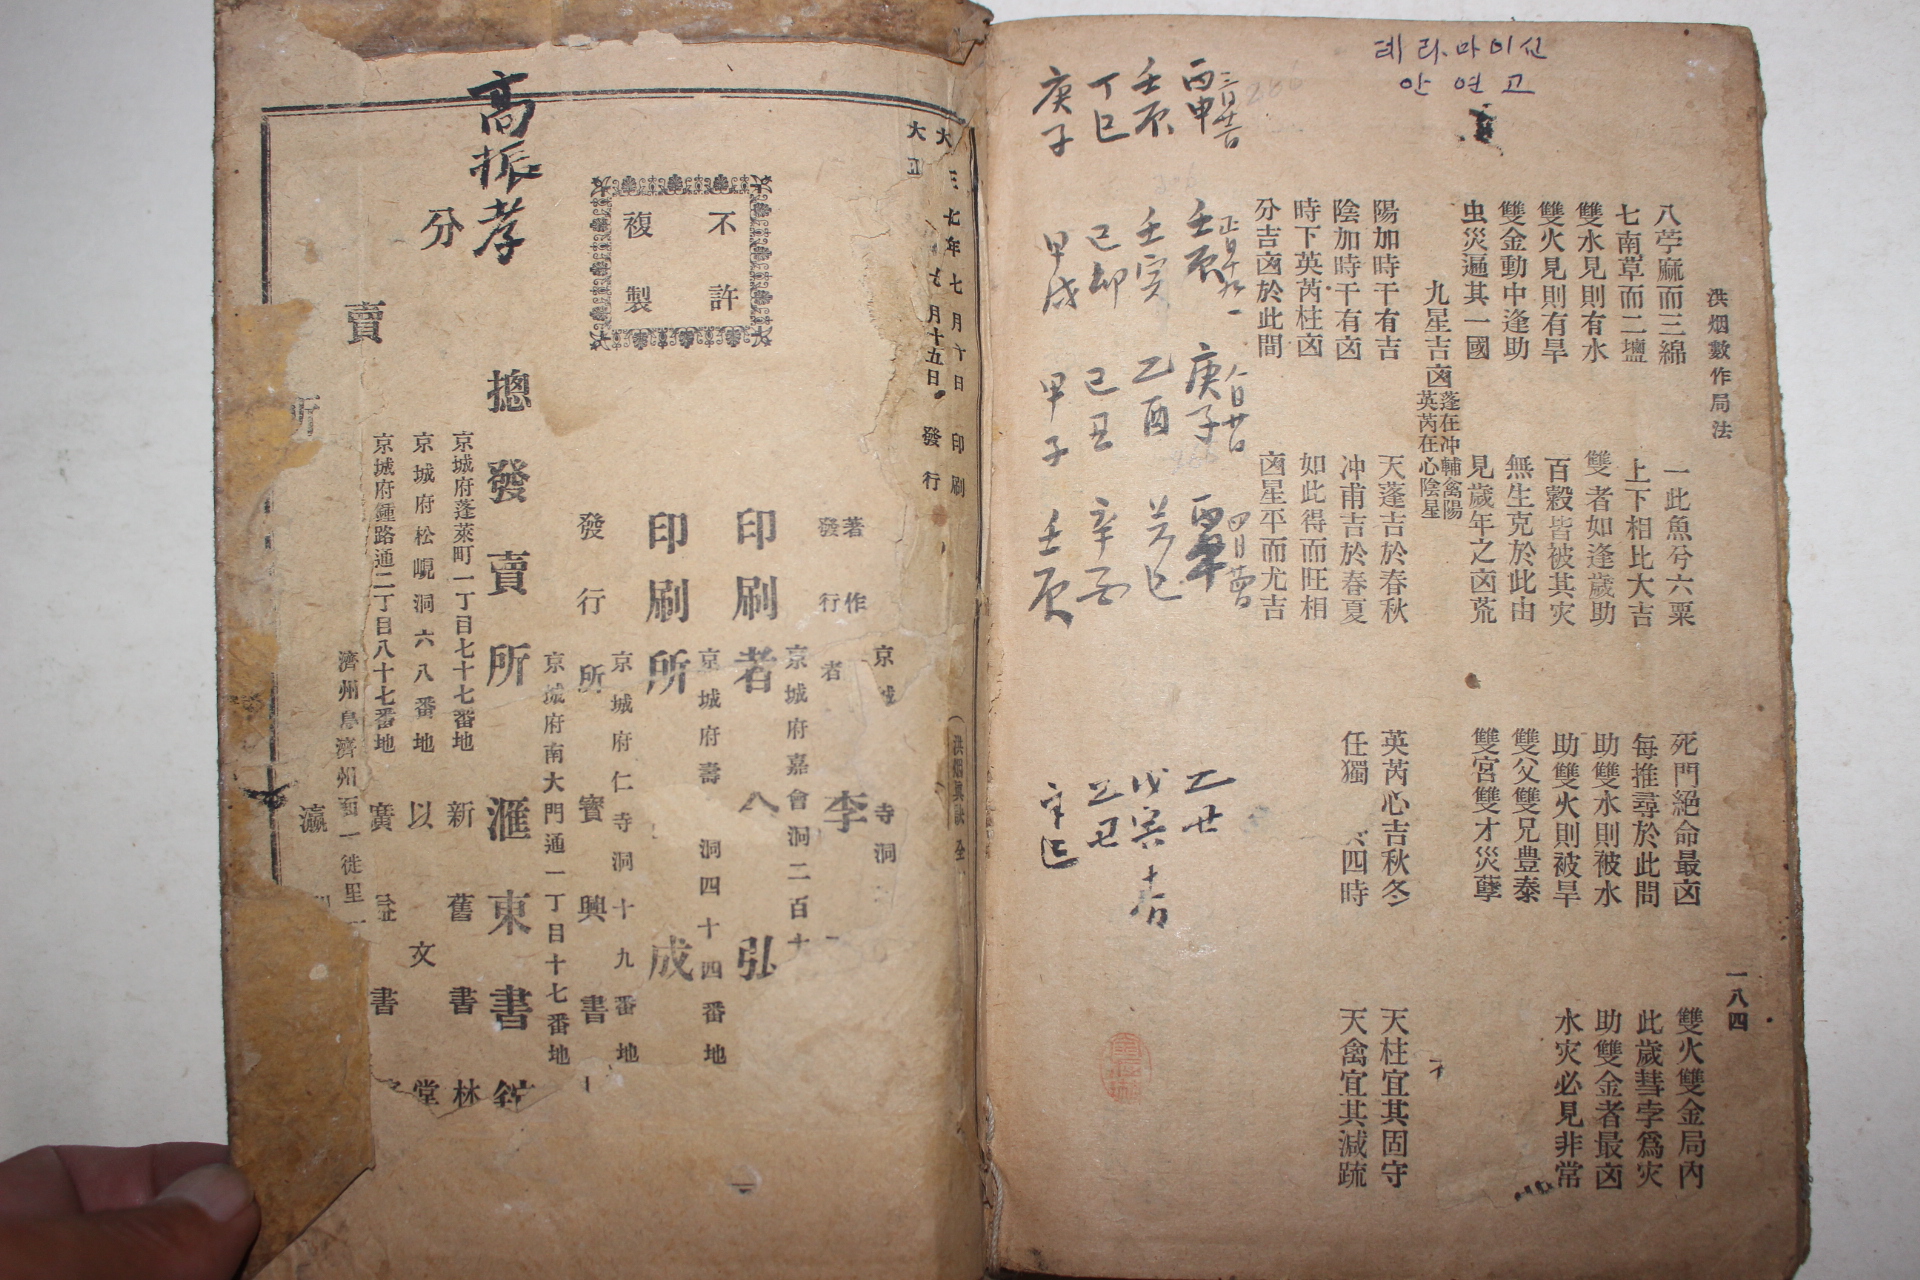 테라마이신
안연고
洪烟數作局法
一八四
八苧麻而三綿
一此魚兮六粟
死門絕命最凶
雙火雙金局內
七南草而二塩
上下相比大吉
每推尋於此問
此歲彗孛爲灾
雙水見則有水
雙者如逢歲助
助雙水則被水
助雙金者最凶
雙火見則有旱
百穀皆被其灾
助雙火則被旱
水灾必見非常
雙金動中逢助
無生克於此由
雙父雙兄豊泰
虫災遍其一國
見歲年之凶荒
雙宮雙才災孽
九星吉凶
蓬在冲輔禽陽
英芮在心陰星
陽加時干有吉
天蓬吉於春秋
英芮心吉秋冬
天柱宜其固守
陰加時干有凶
冲甫吉於春夏
任獨 四時
天禽宜其減䟽
時下英芮柱凶
如此得而旺相
分吉凶於此間
凶星平而尤吉
丙申
壬辰
庚子
乙廿
壬辰
壬寅
乙酉
戊寅
丁巳
己卯
己丑
辛
乙丑
庚子
甲戌
甲子
壬辰
年七月 日 印刷
月十五日 發行
不許
複製
高振孝
著作
發行
者 李
京 寺洞
京城府嘉會洞二百十
印刷者 弘
京城府壽 洞四十四番地
印刷所 成
京城府仁寺洞十九番地
發行所 寶興書
京城府南大門通一丁目十七番地
摠發賣所 滙東書舘
分賣所
京城府蓬萊町一丁目七十七番地
新舊書林
京城府松峴洞六八番地
以文堂
京城府鍾路通二丁目八十七番地
廣益書
濟州島濟州面一徒里一
瀛